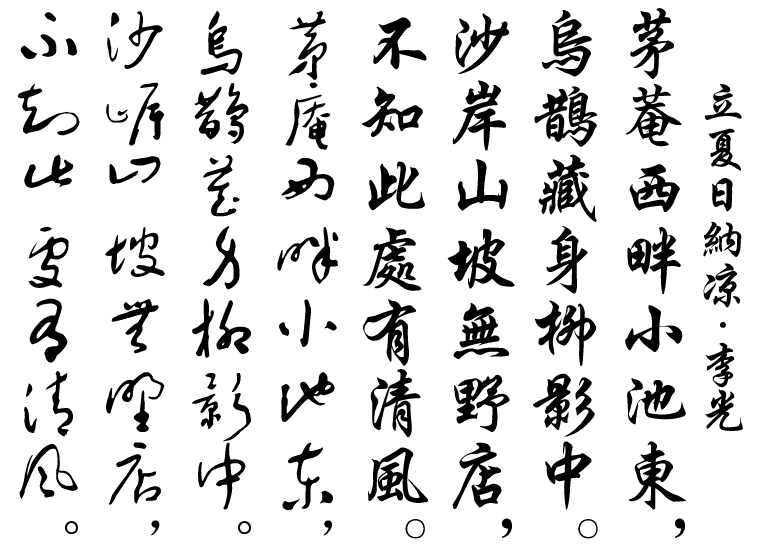 立夏日納凉·李光
茅菴西畔小池東，
烏鵲藏身柳影中。
沙岸山坡無野店，
不知此處有清風。
茅庵西畔小池东，
烏鵲藏身柳影中。
沙岸山坡無野店，
不知此處有清風。